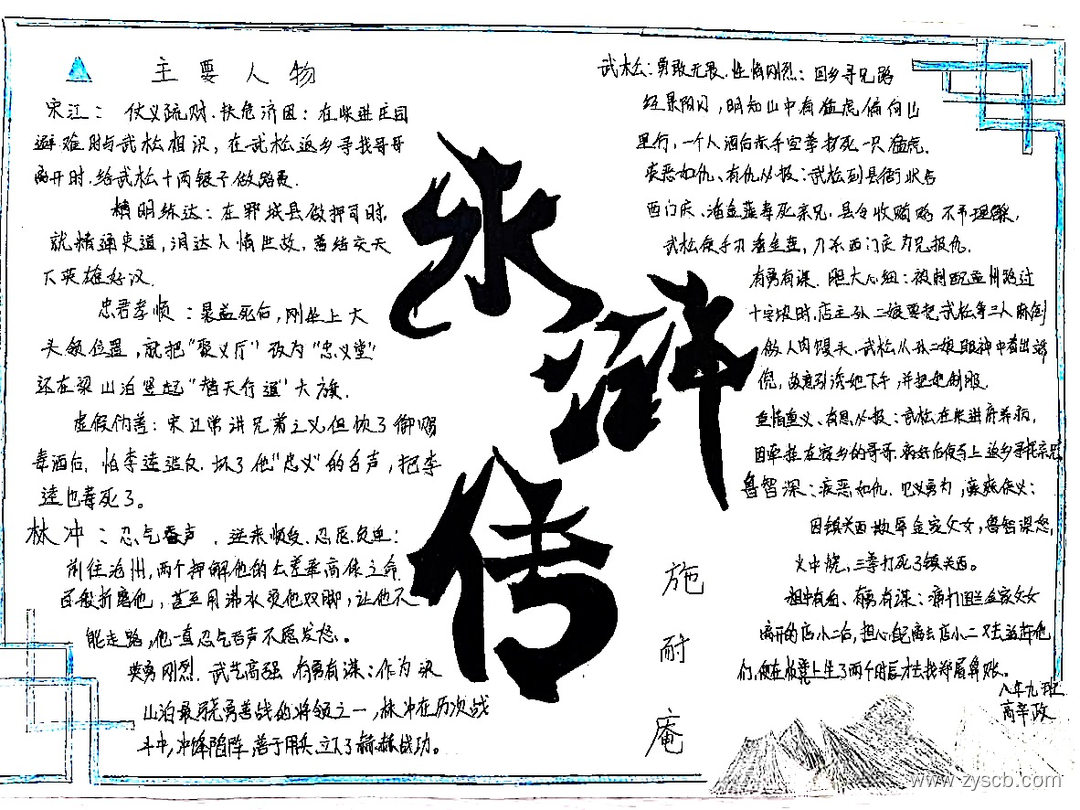 主要人物
宋江：仗义疏财、扶危济困：在柴进庄园
避难时与武松相识，在武松返乡寻找哥哥
离开时，给武松十两银子做路费
精明练达：在郓城县做押司时，
就精译吏道，泪达人情世故，善结交天
下英雄好汉
忠君孝顺：晁盖死后，刚坐上大
头领位置，就把“聚义厅”改为“忠义堂”
还在梁山泊竖起“替天行道”大旗.
虚假伪善：宋江常讲兄弟之义但饮了御赐
毒酒后，怕李逵造反，坏了他“忠义”的名声，把李
逵也毒死了。
林冲：忍气吞声，逆来顺受、忍辱负重：
前往沧州，两个押解他的公差奉高俅之命
百般折磨他，甚至用沸水烫他双脚，让他不
能走路，他一直忍气吞声不愿发怒。
英勇刚烈、武艺高强、有勇有谋：作为梁
山泊最骁勇善战的将领之一，林冲在历次战
斗中，冲锋陷阵，善于用兵，立下了赫赫战功。
水浒传
施耐庵
武松：勇敢无畏、性情刚烈：回乡寻兄路
经景阳冈，明知山中有猛虎，偏向山
里行，一个人酒后赤手空拳打死一只猛虎.
疾恶如仇、有仇必报：武松到县衙状告
西门庆、潘金莲毒死亲兄，县令收贿赂不予理睬，
武松便手刃潘金莲，刀杀西门庆为兄报仇.
有勇有谋、胆大心细：被刺配孟州路过
十字坡时，店主孙二娘要把武松等三人麻倒
做人肉馒头，武松从孙二娘眼神中看出端
倪，故意引诱她下手，并把她制服.
重情重义、有恩必报：武松在柴进府养病，
因牵挂在家乡的哥哥，病好后便马上返乡寻找亲兄
鲁智深：疾恶如仇、见义勇为，慷慨侠义：
因镇关西欺辱金家父女，鲁智深怒
火中烧，三拳打死了镇关西。
粗中有细、有勇有谋：痛打阻拦金家父女
离开的店小二后，担心他离去店小二又去追赶他
们，便在板凳上坐了两个时辰后才去找郑屠算账。
八年九班
高辛政
www.zyscb.com